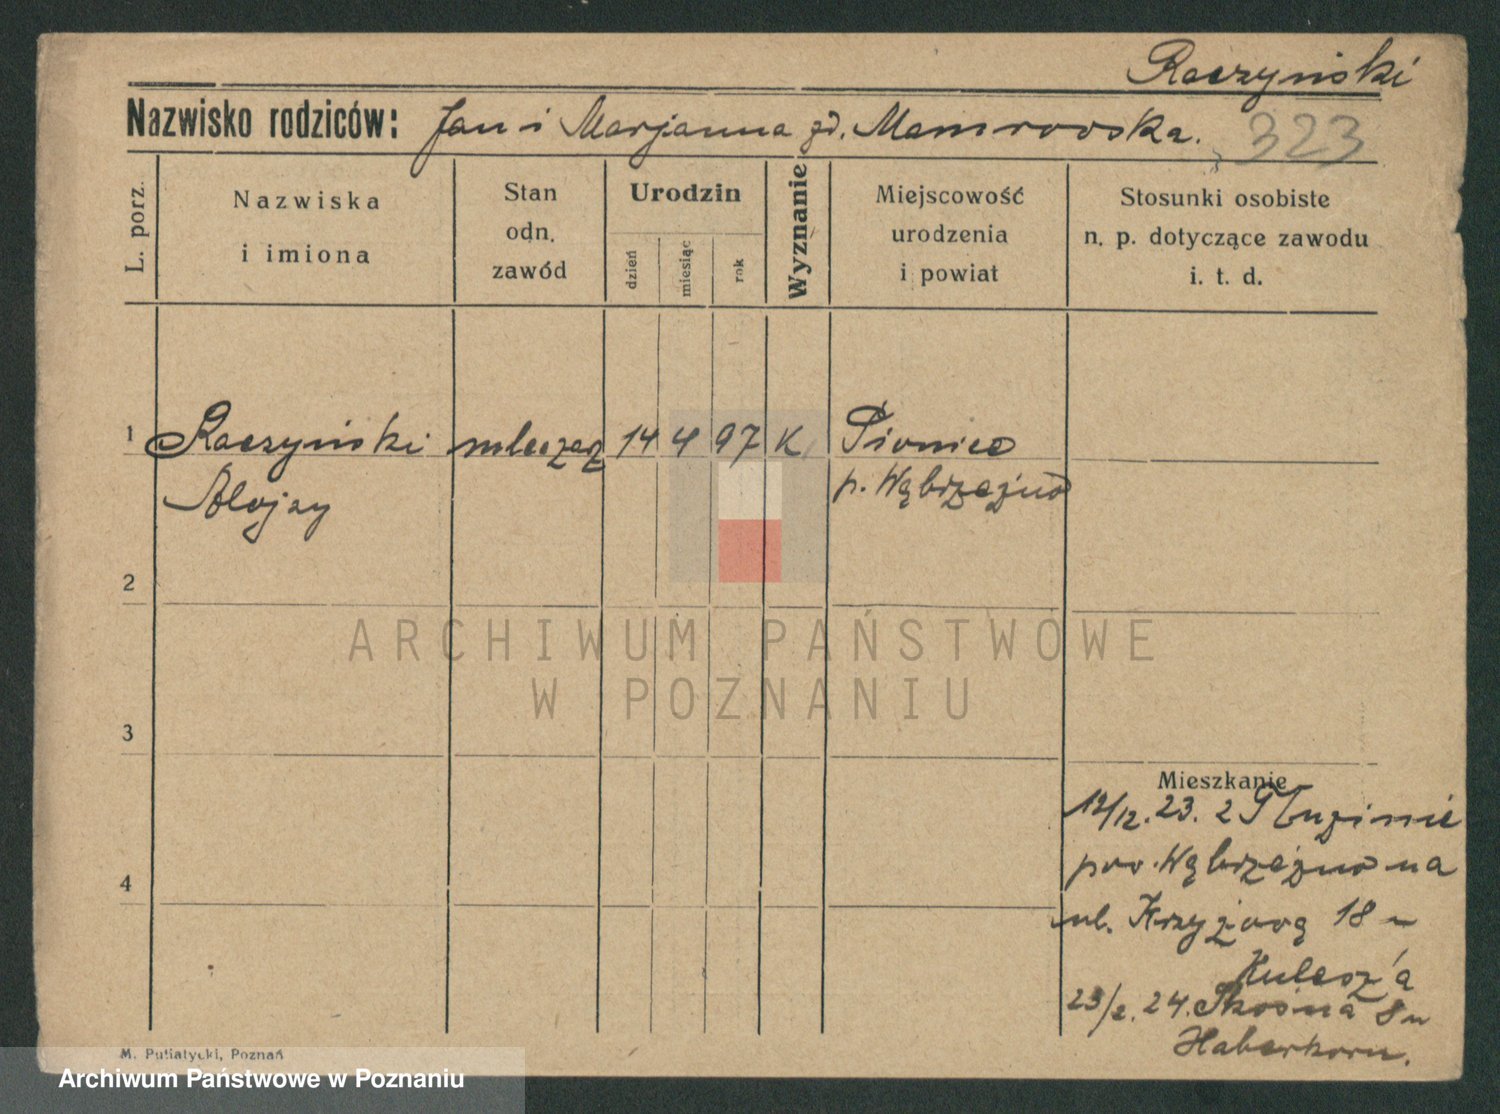 Raczyński
Nazwisko rodziców: Jan i Marjanna zd. Mamrowska. 323
L. porz.
Nazwiska
i imiona
Stan
odn.
zawód
Urodzin
dzień
miesiąc
rok
Wyznanie
Miejscowość
urodzenia
i powiat
Stosunki osobiste
n. p. dotyczące zawodu
i. t. d.
1 Raczyński mleczarz 14 4 97 K Piwnice
Alojzy p. Wąbrzeźno
2
ARCHIWUM PAŃSTWOWE
W POZNANIU
3
Mieszkanie
12/12. 23. z
pow. Wąbrzeźno na
4
ul. Krzyżową 18
23/2. 24. Skośna 8 u
Haberkorn.
M. Putiatycki, Poznań
Archiwum Państwowe w Poznaniu